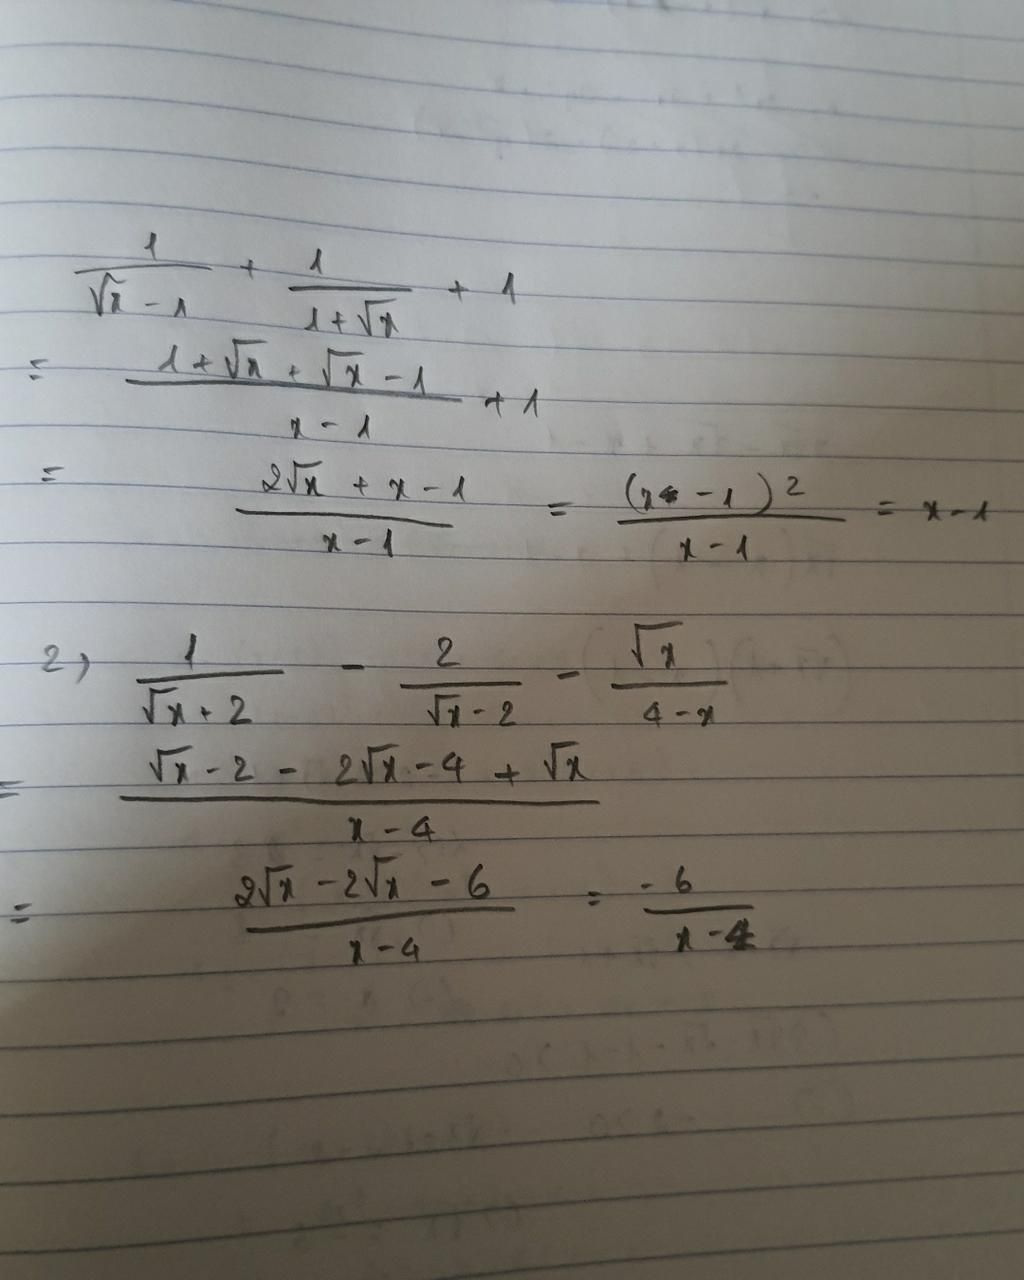 1/(√x - 1) + 1/(1 + √x) + 1
= (1 + √x + √x - 1)/(x - 1) + 1
= (2√x + x - 1)/(x - 1) = (x - 1)²/(x - 1) = x - 1
2) 1/(√x + 2) - 2/(√x - 2) - √x/(4 - x)
= (√x - 2 - 2√x - 4 + √x)/(x - 4)
= (2√x - 2√x - 6)/(x - 4) = -6/(x - 4)